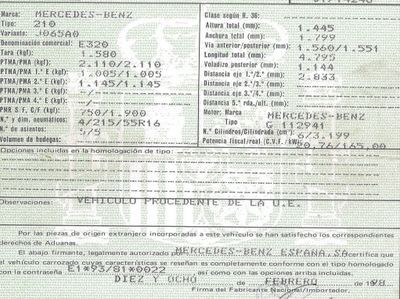 Marca: MERCEDES-BENZ
Tipo: 210
Variante: J065A0
Denominación comercial: E320
Tara (kgf): 1.580
PTMA/PMA (kgf): 2.110/2.110
PTMA/PMA 1.º E (kgf): 1.005/1.005
PTMA/PMA 2.º E (kgf): 1.145/1.145
PTMA/PMA 3.º E (kgf): -/-
PTMA/PMA 4.º E (kgf): -/-
PMR S/F. C/F (kgf): 750/1.900
N.º y dim. neumáticos: 4/215/55R16
N.º de asientos: 5/5
Volumen de bodegas:
Clase según H. 36:
Altura total (mm): 1.445
Anchura total (mm): 1.799
Vía anterior/posterior (mm): 1.560/1.551
Longitud total (mm): 4.795
Voladizo posterior (mm): 1.144
Distancia eje 1.º/2.º (mm): 2.833
Distancia eje 2.º/3.º (mm):
Distancia eje 3.º/4.º (mm):
Distancia 5.ª rda./últ. (mm):
Motor: Marca MERCEDES-BENZ
Tipo G 112941
N.º Cilindros/Cilindrada (cm³): 6/3.199
Potencia fiscal/real (C.V.F./kW): 20.76/165.00
Opciones incluidas en la homologación de tipo:
Observaciones: VEHICULO PROCEDENTE DE LA U.E.
Por las piezas de origen extranjero incorporadas a este vehículo se han satisfecho los correspondientes
derechos de Aduanas.
El abajo firmante, legalmente autorizado por MERCEDES-BENZ ESPAÑA,SA certifica que
el vehículo carrozado cuyas características se reseñan es completamente conforme con el tipo homologado
con la contraseña E1*93/81*0022 así como con las opciones arriba incluidas.
DIEZ Y OCHO de FEBRERO de 1998
Firma del Fabricante Nacional/Importador.